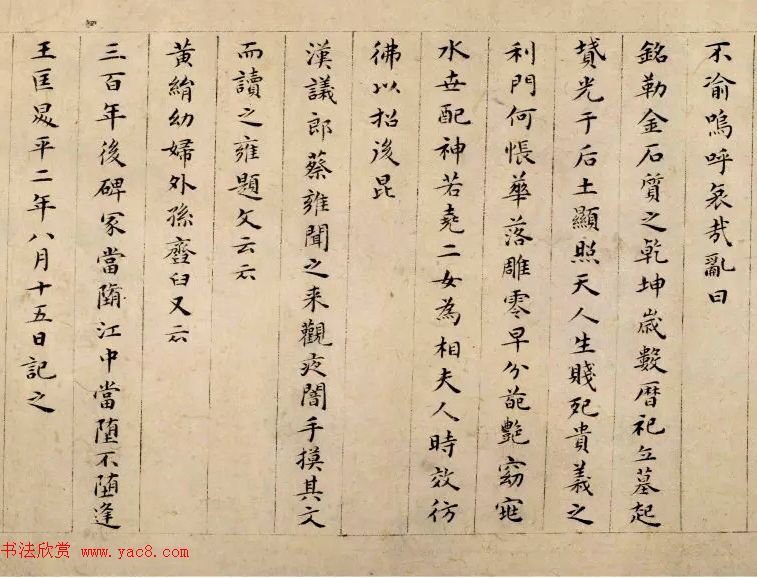 不渝嗚呼哀哉亂曰
銘勒金石質之乾坤歲數曆祀立墓起
墳光于后土顯照天人生賤死貴義之
利門何悵華落雕零早分葩艷窈窕
永世配神若堯二女為相夫人時效彷
彿以招後昆
漢議郎蔡雍聞之来觀夜闇手摸其文
而讀之雍題文云云
黃絹幼婦外孫齏臼又云
三百年後碑冢當墮江中當墮不墮逢
王匡昇平二年八月十五日記之
书法欣赏 www.yac8.com